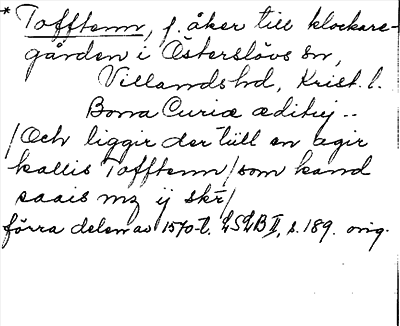 * Tofftenn, f. åker till klockare-
gården i Österslövs sn,
Villands hd, Krist. l.
Bona Curiæ ædituj..
/Och liggir der till en agir
kallis Tofftenn/som kand
saais mz ij skr/
förra delen av 1570-t. LSLB II, s. 189. orig.